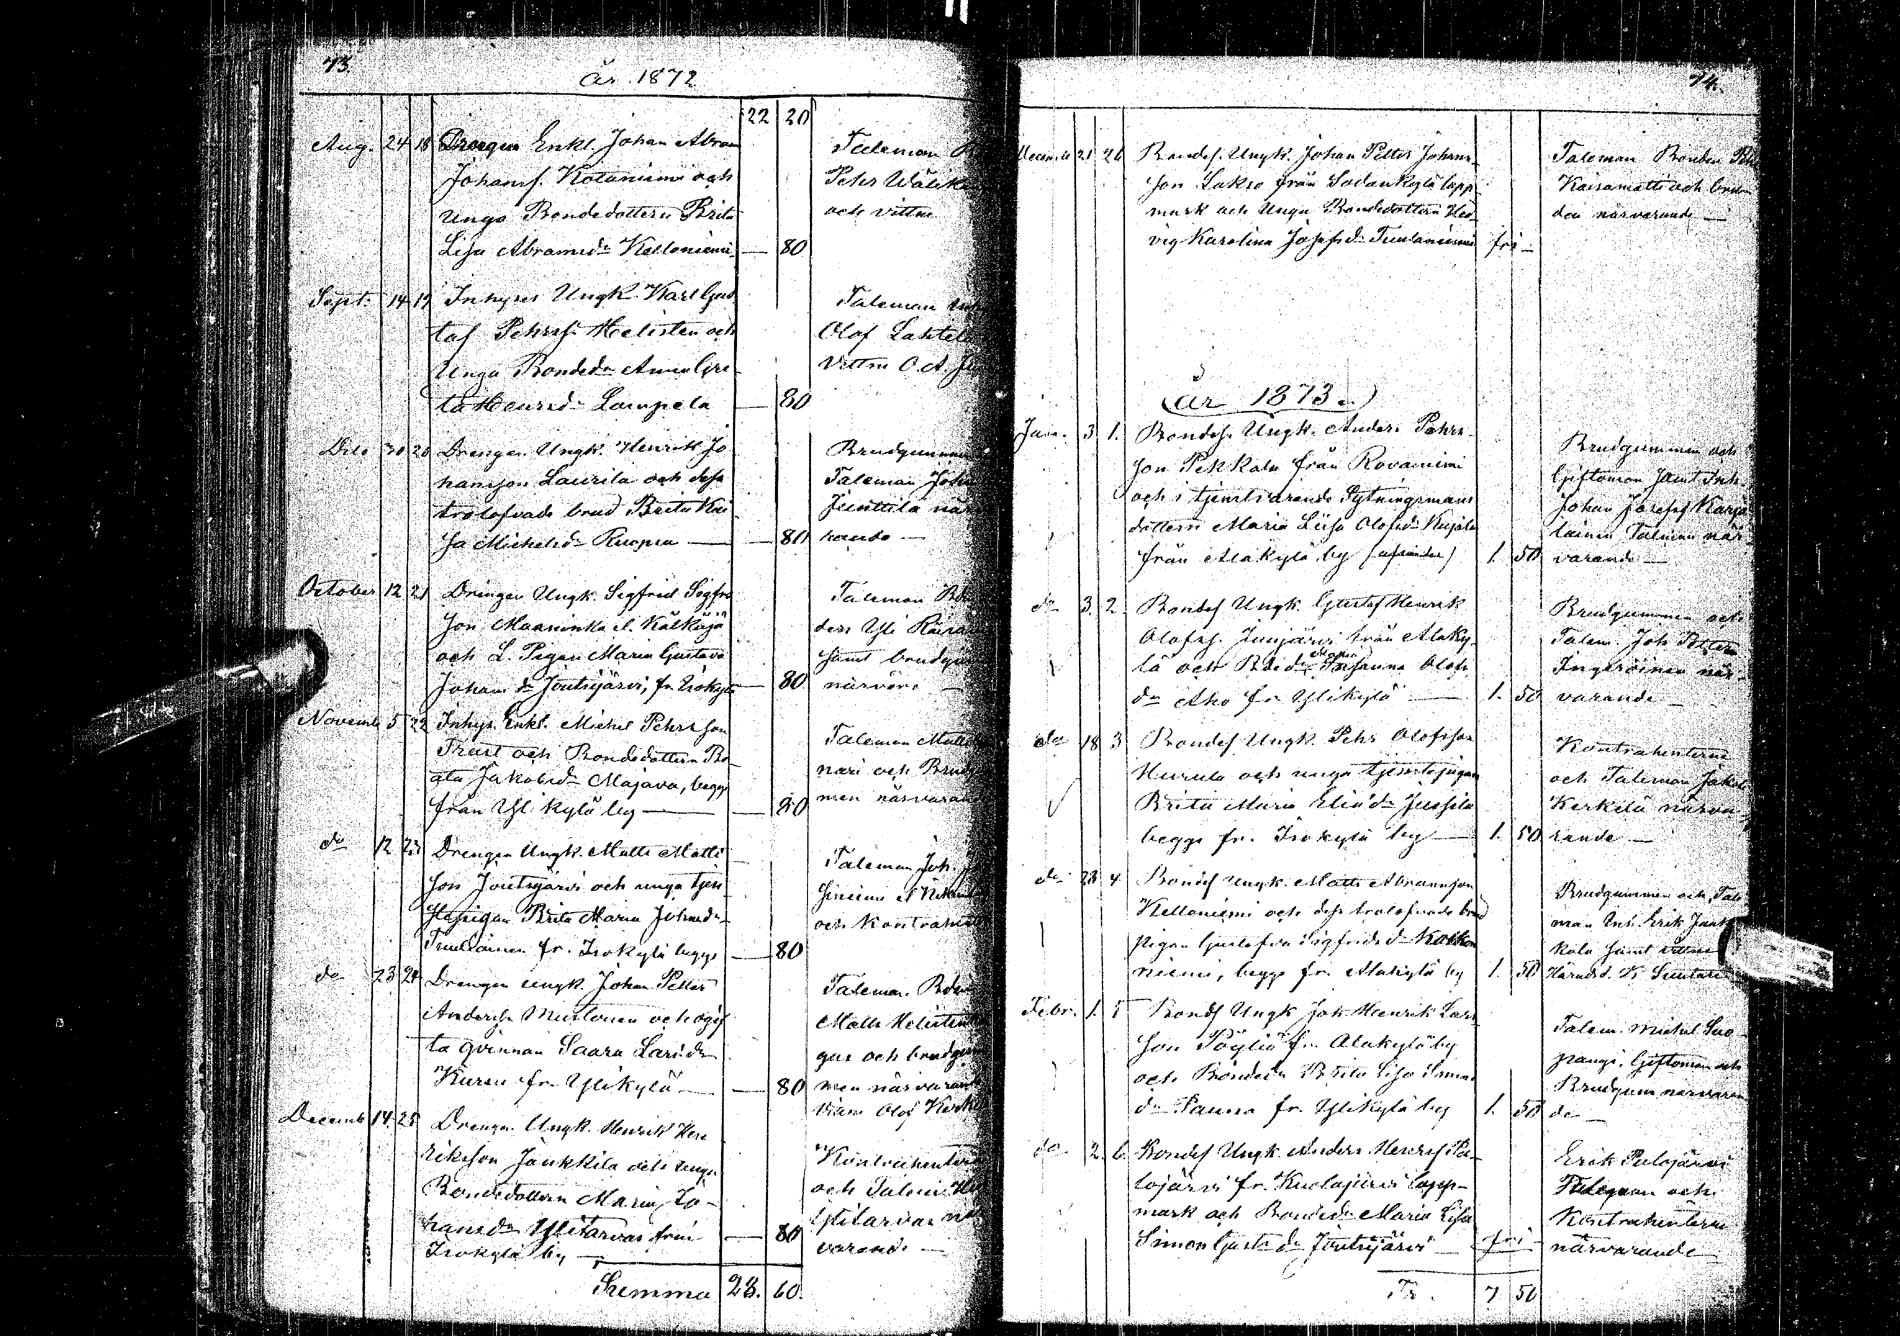 73.
År 1872
22 20
Aug. 24 18 Drengen Enkl. Johan Abram
Johansf. Kotaniemi och
unga Bondedottern Brita
Lisa Abramsdr Kelloniemi — 80
Taleman
Pehr
och vittne
Sept. 14 19 Inhyses Ungk. Karl Gus
taf Pehrsf. Helisten och
Unga Bondedr Anna Gre
ta Henrsdr Lampela — 80
Taleman
Olof Lahtela
Vittne O. A.
Dito 30 20 Drengen Ungk. Henrik Jo
hansson Laurila och dess
trolofvade brud Brita Kai
sa Michelsdr Ruopsa — 80
Brudgummen
Taleman Joh
Junttila när
rande —
October 12 21 Drengen Ungk. Sigfrid Sigfrs
son Maaninka el. Kälkäjä
och L. Pigan Maria Gustava
Johansdr Joutsijärvi, fr. Isokylä — 80
Taleman
ders Yli
samt brudgum
närväro —
Novemb 5 22 Inhys. Enkl. Michel Pehrsson
Trast och Bondedottern Be
ata Jakobsdr Majava, begge
från Yli kylä by — 80
Taleman Matts
nari och Brudgum
men närvarand
do 12 23 Drengen Ungk. Matts Matts
son Joutsijärvi och unga tjen
stepigan Brita Maria Johansdr
Tuulaniemi fr. Isokylä begge — 80
Taleman Joh.
och Kontrahen
do 23 24 Drengen ungk. Johan Petter
Andersson Mustonen och ogif
ta qvinnan Saara Larsdr
Kuren fr. Ylikylä — 80
Taleman
Matts Helisten
gar och brudgum
men närvarand
Olof
Decemb 14 25 Drengen Ungk. Henrik Hen
riksson Jankkila och unga
Bondedottern Maria Jo-
hansdr Ylitarvas från
Isokylä by — 80
Kontrahenter
och Talem
Ylitarvas när
varande —
Summa 23. 60.
74.
December 21 26 Bondes. Ungk. Johan Petter Johans-
son Lakso från Sodankylä lapp
mark och Unga Bondedottern Hed
vig Karolina Josefsdr Tuulaniemi fri —
Taleman Bonden Pehr
Kairamatti och bruden
den närvarande —
År 1873.
Janu. 3 1. Bondes. Ungk. Anders Pehrs-
son Pekkala från Rovaniemi
och i tjenst varande Sytningsmans
dottern Maria Lisa Olofsdr Kujala
från Alakylä by 1. 50
Brudgummen och
Giftoman samt Inh.
Johan Josefsf Karja
lainen Taleman när-
varande —
do 3. 2. Bondes Ungk. Gustaf Henrik
Olofsf. Junjärvi från Alaky-
lä och Bondedr Maria Susanna Olofs
dr Aho fr Ylikylä — 1. 50
Brudgummen och
Talem. Joh Petter
Ingeröinen när-
varande —
do 18 3 Bondes Ungk. Pehr Olofsson
Hurula och unga tjenstepigan
Brita Maria Eliædr Jussila
begge fr. Isokylä by — 1. 50
Kontrahenterne
och Taleman Jakob
Kerkelä närva
rande —
do 28 4 Bondes Ungk. Matts Abramsson
Kelloniemi och dess trolofvade brud
pigan Gustafva Sigfridsdr Kotkan
niemi, begge fr. Alakylä by 1. 50
Brudgummen och Tale
man Inh. Erik Jank
kala samt vittne
Häradsd. K.
Febr. 1. 5 Bondes Ungk. Joh Henrik Lars
son Pöyliö fr. Alakylä by
och Bondedr Brita Lisa Simons
dr Pauna fr. Ylikylä by 1. 50
Talem. Michel Suo
pangi, Giftoman och
Brudgum närvaran
de —
do 2. 6. Bondes Ungk. Anders Henrsf Pa-
lojärvi fr. Kuolajärvi lapp-
mark och Bondedr Maria Lisa
Simon Gustsdr Joutsijärvi fri —
Erik Palojärvi
Taleman och
Kontrahenterne
närvarande
Tr. 7 50